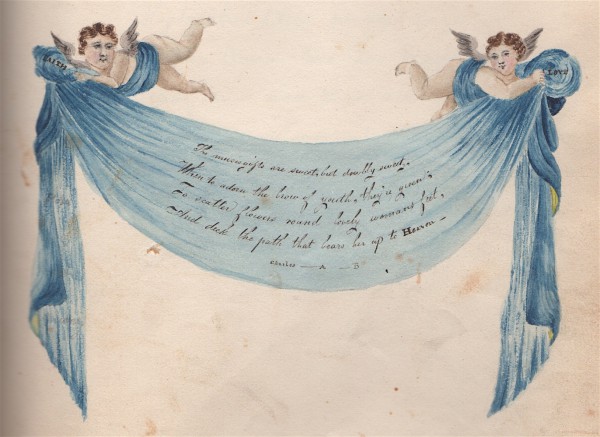 FAITH
LOVE
The muses gifts are sweet, but doubly sweet,
When to adorn the brow of youth, they're given;
To scatter flowers round lovely womans feet,
And deck the path that bears her up to Heaven —